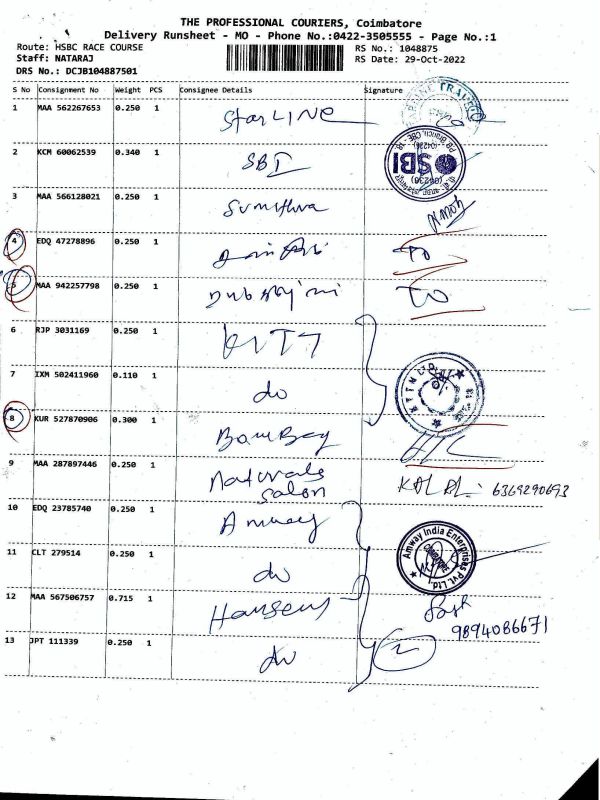 THE PROFESSIONAL COURIERS, Coimbatore
Delivery Runsheet - MO - Phone No.:0422-3505555 - Page No.:1
Route: HSBC RACE COURSE RS No.: 1048875
Staff: NATARAJ RS Date: 29-Oct-2022
DRS No.: DCJB104887501
S No Consignment No Weight PCS Consignee Details Signature
1 MAA 562267653 0.250 1 StarLINE
2 KCM 60062539 0.340 1 SBI SBI
3 MAA 566128021 0.250 1 Sumithra
4 EDQ 47278896 0.250 1
5 MAA 942257798 0.250 1
6 RJP 3031169 0.250 1
7 IXM 502411960 0.110 1 do
8 KUR 527870906 0.300 1 Bombay
9 MAA 287897446 0.250 1 Naturals Salon 6369290693
10 EDQ 23785740 0.250 1 Amway Amway India Enterprises Pvt. Ltd
11 CLT 279514 0.250 1 do
12 MAA 567506757 0.715 1 Hansens 9894086671
13 JPT 111339 0.250 1 do 2